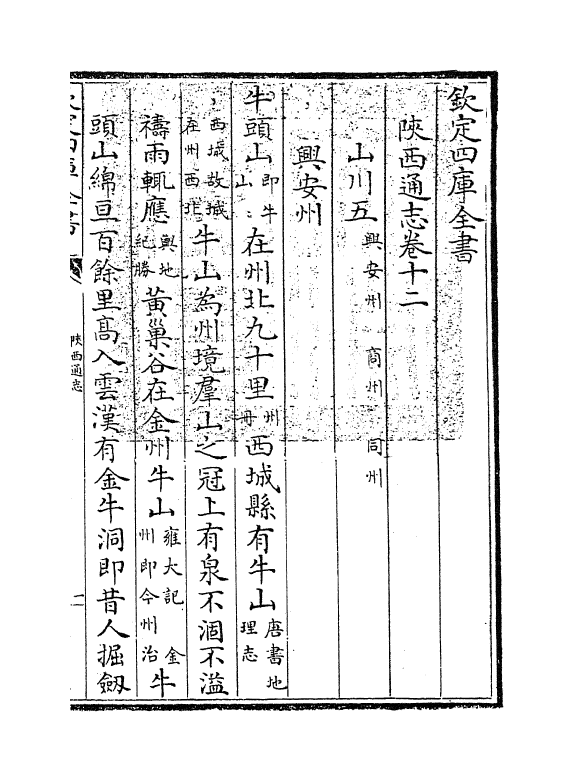 欽定四庫全書
陜西通志巻十二
山川五興安州 商州 同州
興安州
牛頭山即牛山在州北九十里州冊西城縣有牛山唐書地理志
西城故城在州西北牛山為州境羣山之冠上有泉不涸不溢
禱雨輒應輿地紀勝黄巢谷在金州牛山雍大記 金州即今州治牛
頭山綿亘百餘里髙入雲漢有金牛洞即昔人掘劔
欽定四庫全書
陜西通志